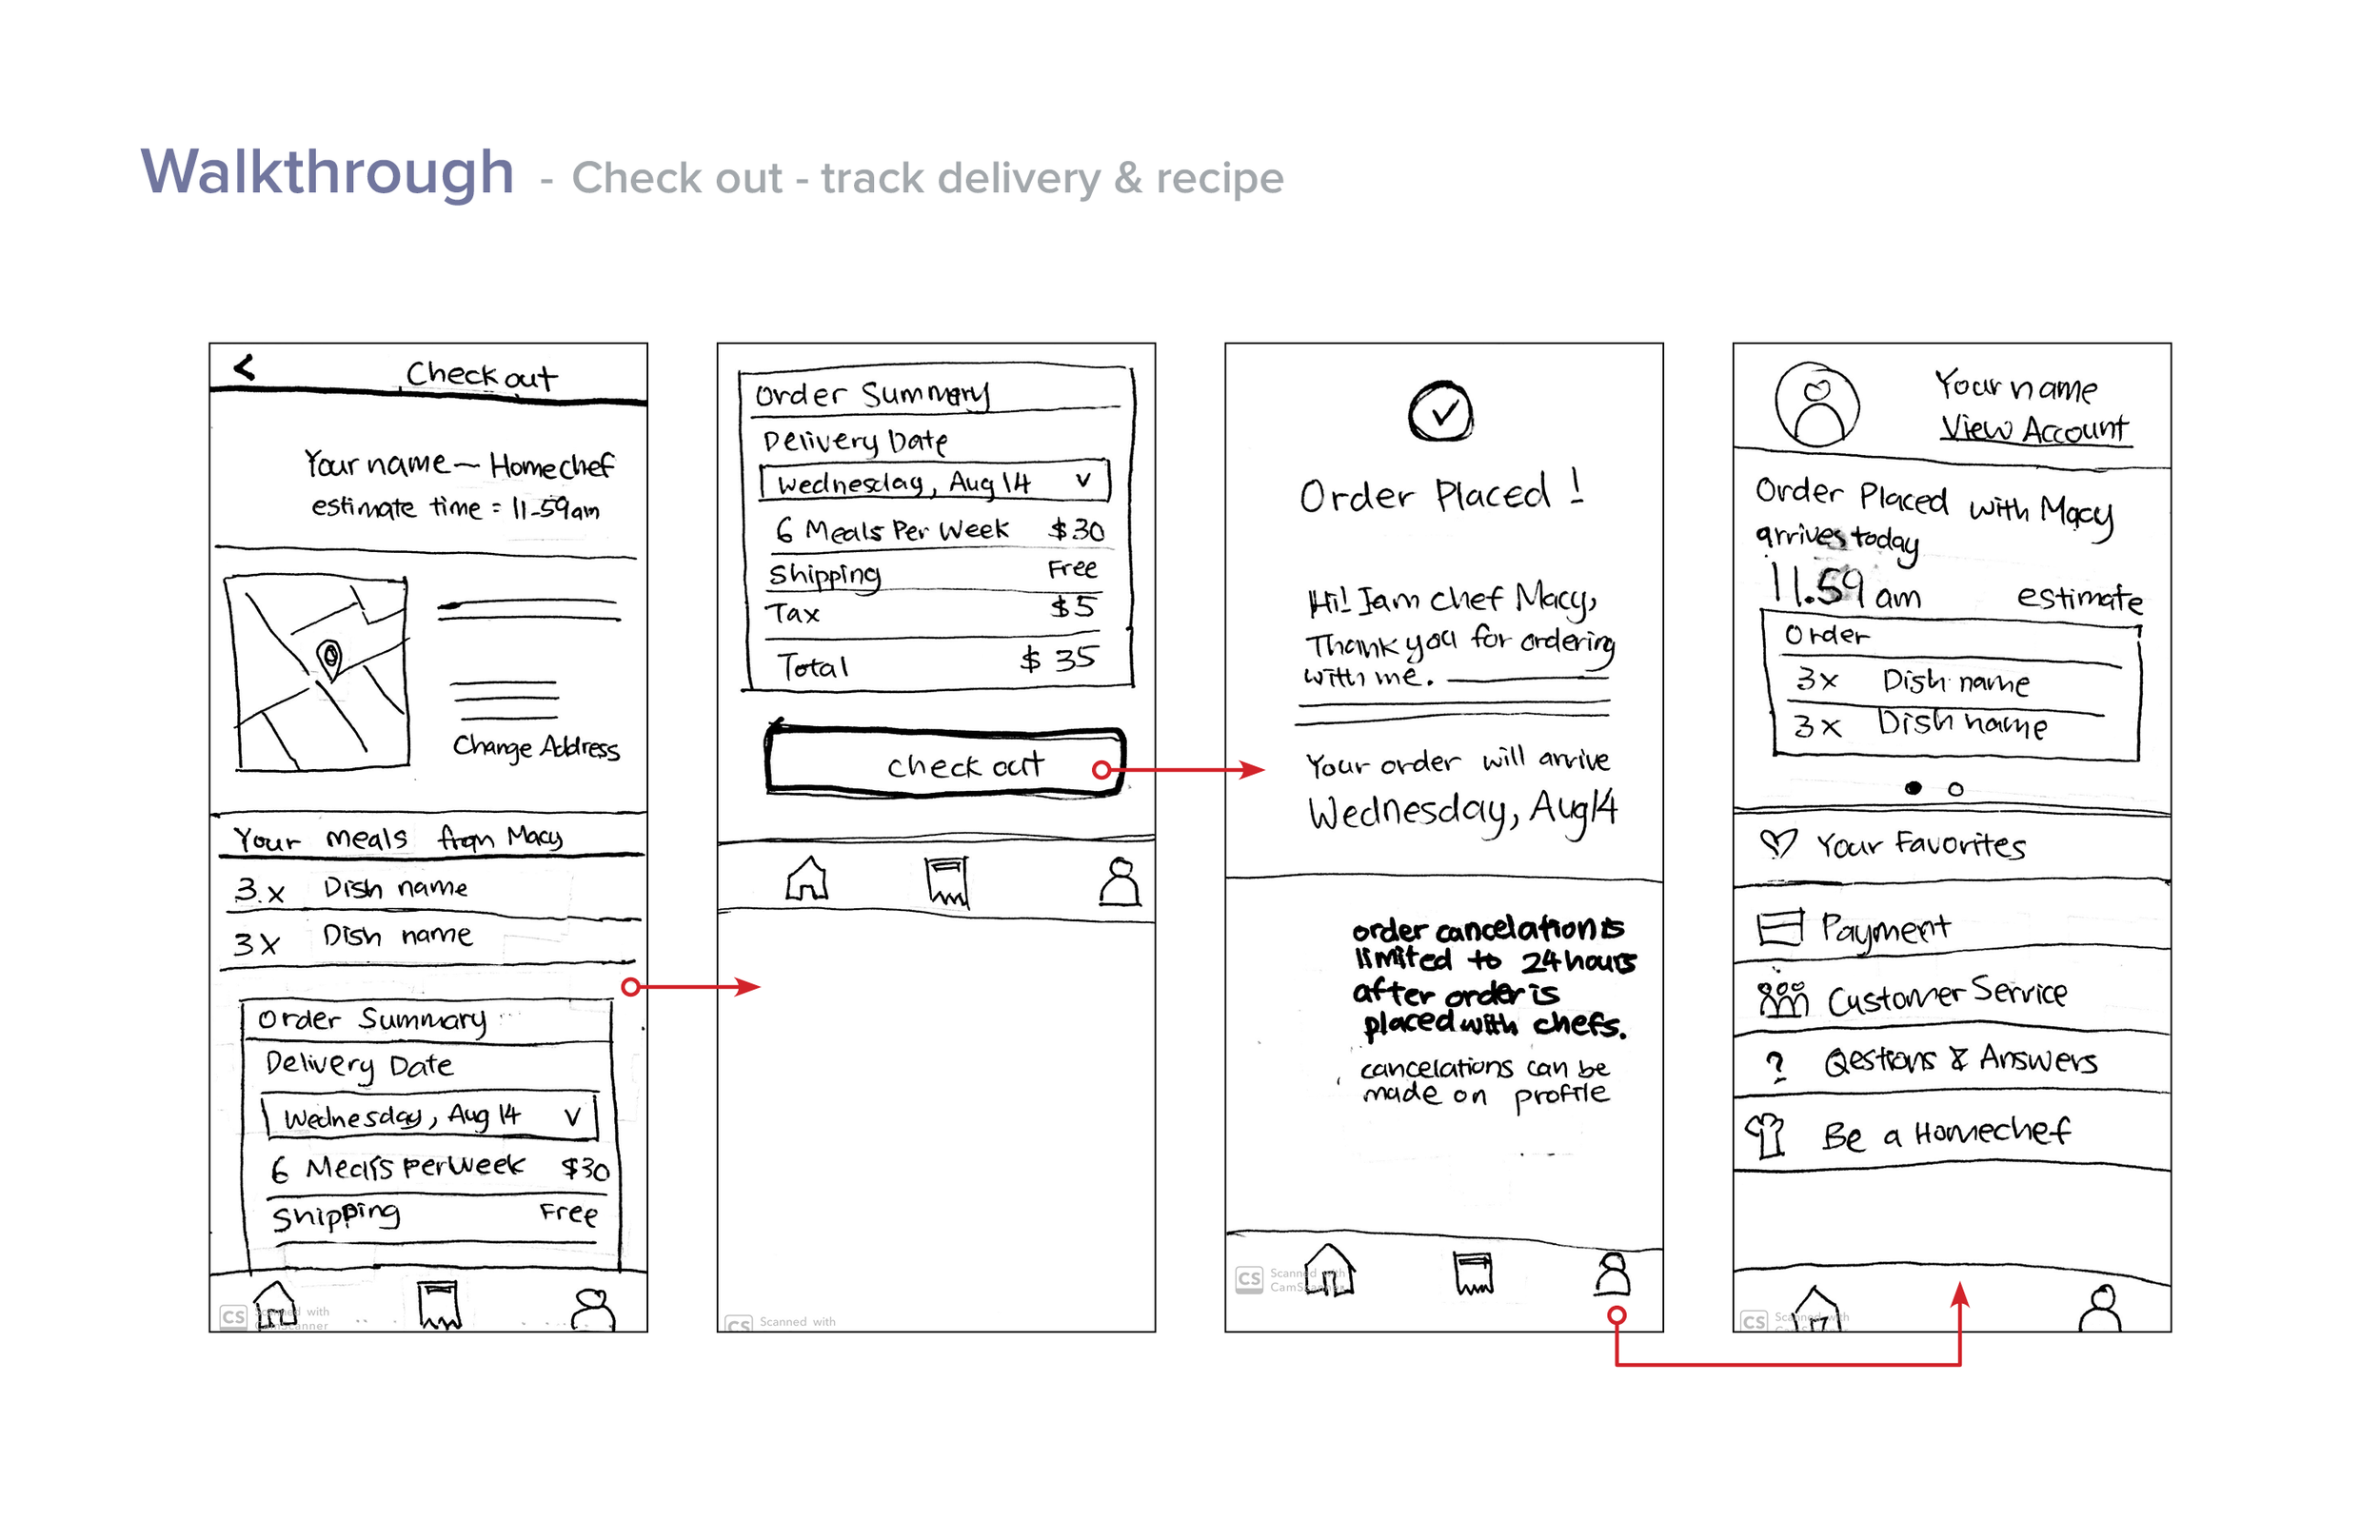 Walkthrough - Check out - track delivery & recipe
Check out
Your name — Homechef
estimate time = 11-59am
Change Address
Your meals from Macy
3.x Dish name
3x Dish name
Order Summary
Delivery Date
Wednesday, Aug 14 v
6 Meals Per Week $30
Shipping Free
CS Scanned with
CamScanner
Order Summary
Delivery Date
Wednesday, Aug 14 v
6 Meals Per Week $30
Shipping Free
Tax $5
Total $35
Check out
CS Scanned with
Order Placed!
Hi! I am chef Macy,
Thank you for ordering
with me.
Your order will arrive
Wednesday, Aug 14
order cancelation is
limited to 24 hours
after order is
placed with chefs.
cancelations can be
made on profile
CS Scanned with
CamScanner
Your name
View Account
Order Placed with Macy
arrives today
11.59 am estimate
Order
3x Dish name
3x Dish name
Your Favorites
Payment
Customer Service
? Qestions & Answers
Be a Homechef
CS Scanned with